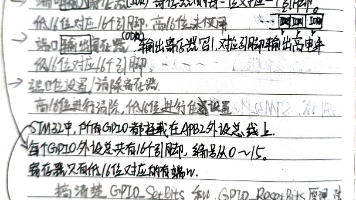 低16位对应16个引脚,高16位未使用
端口输出寄存器(ODR),输出寄存器写1,对应引脚输出高电平
低16位
→端口位设置/清除寄存器
高16位进行清除,低16位进行设置
STM32中,所有GPIO都挂载在APB2外设总线上.
每个GPIO外设总共有16个引脚,编号从0~15.
寄存器只有低16位对应的有端口.
搞清楚 GPIO_SetBits 和 GPIO_ResetBits